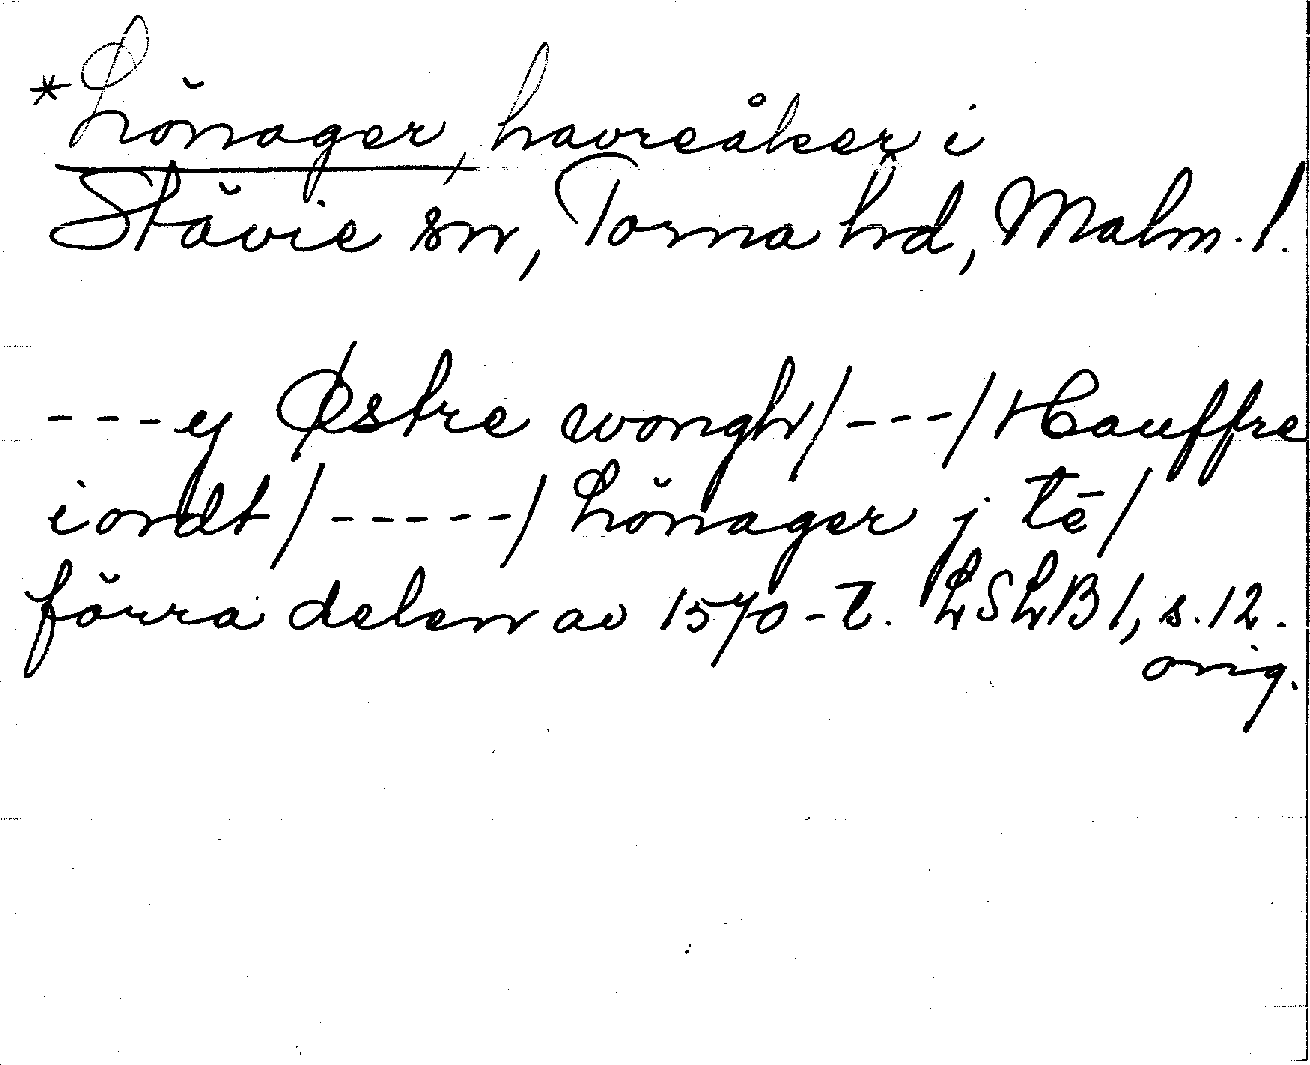 *Lönager, havreåker i
Stävie sn, Torna hd, Malm. l.
---y Østre wongh/---/Hauffre
iordt/-----/Lönager j tē/
förra delen av 1570-t. LSLB1, s.12.
orig.